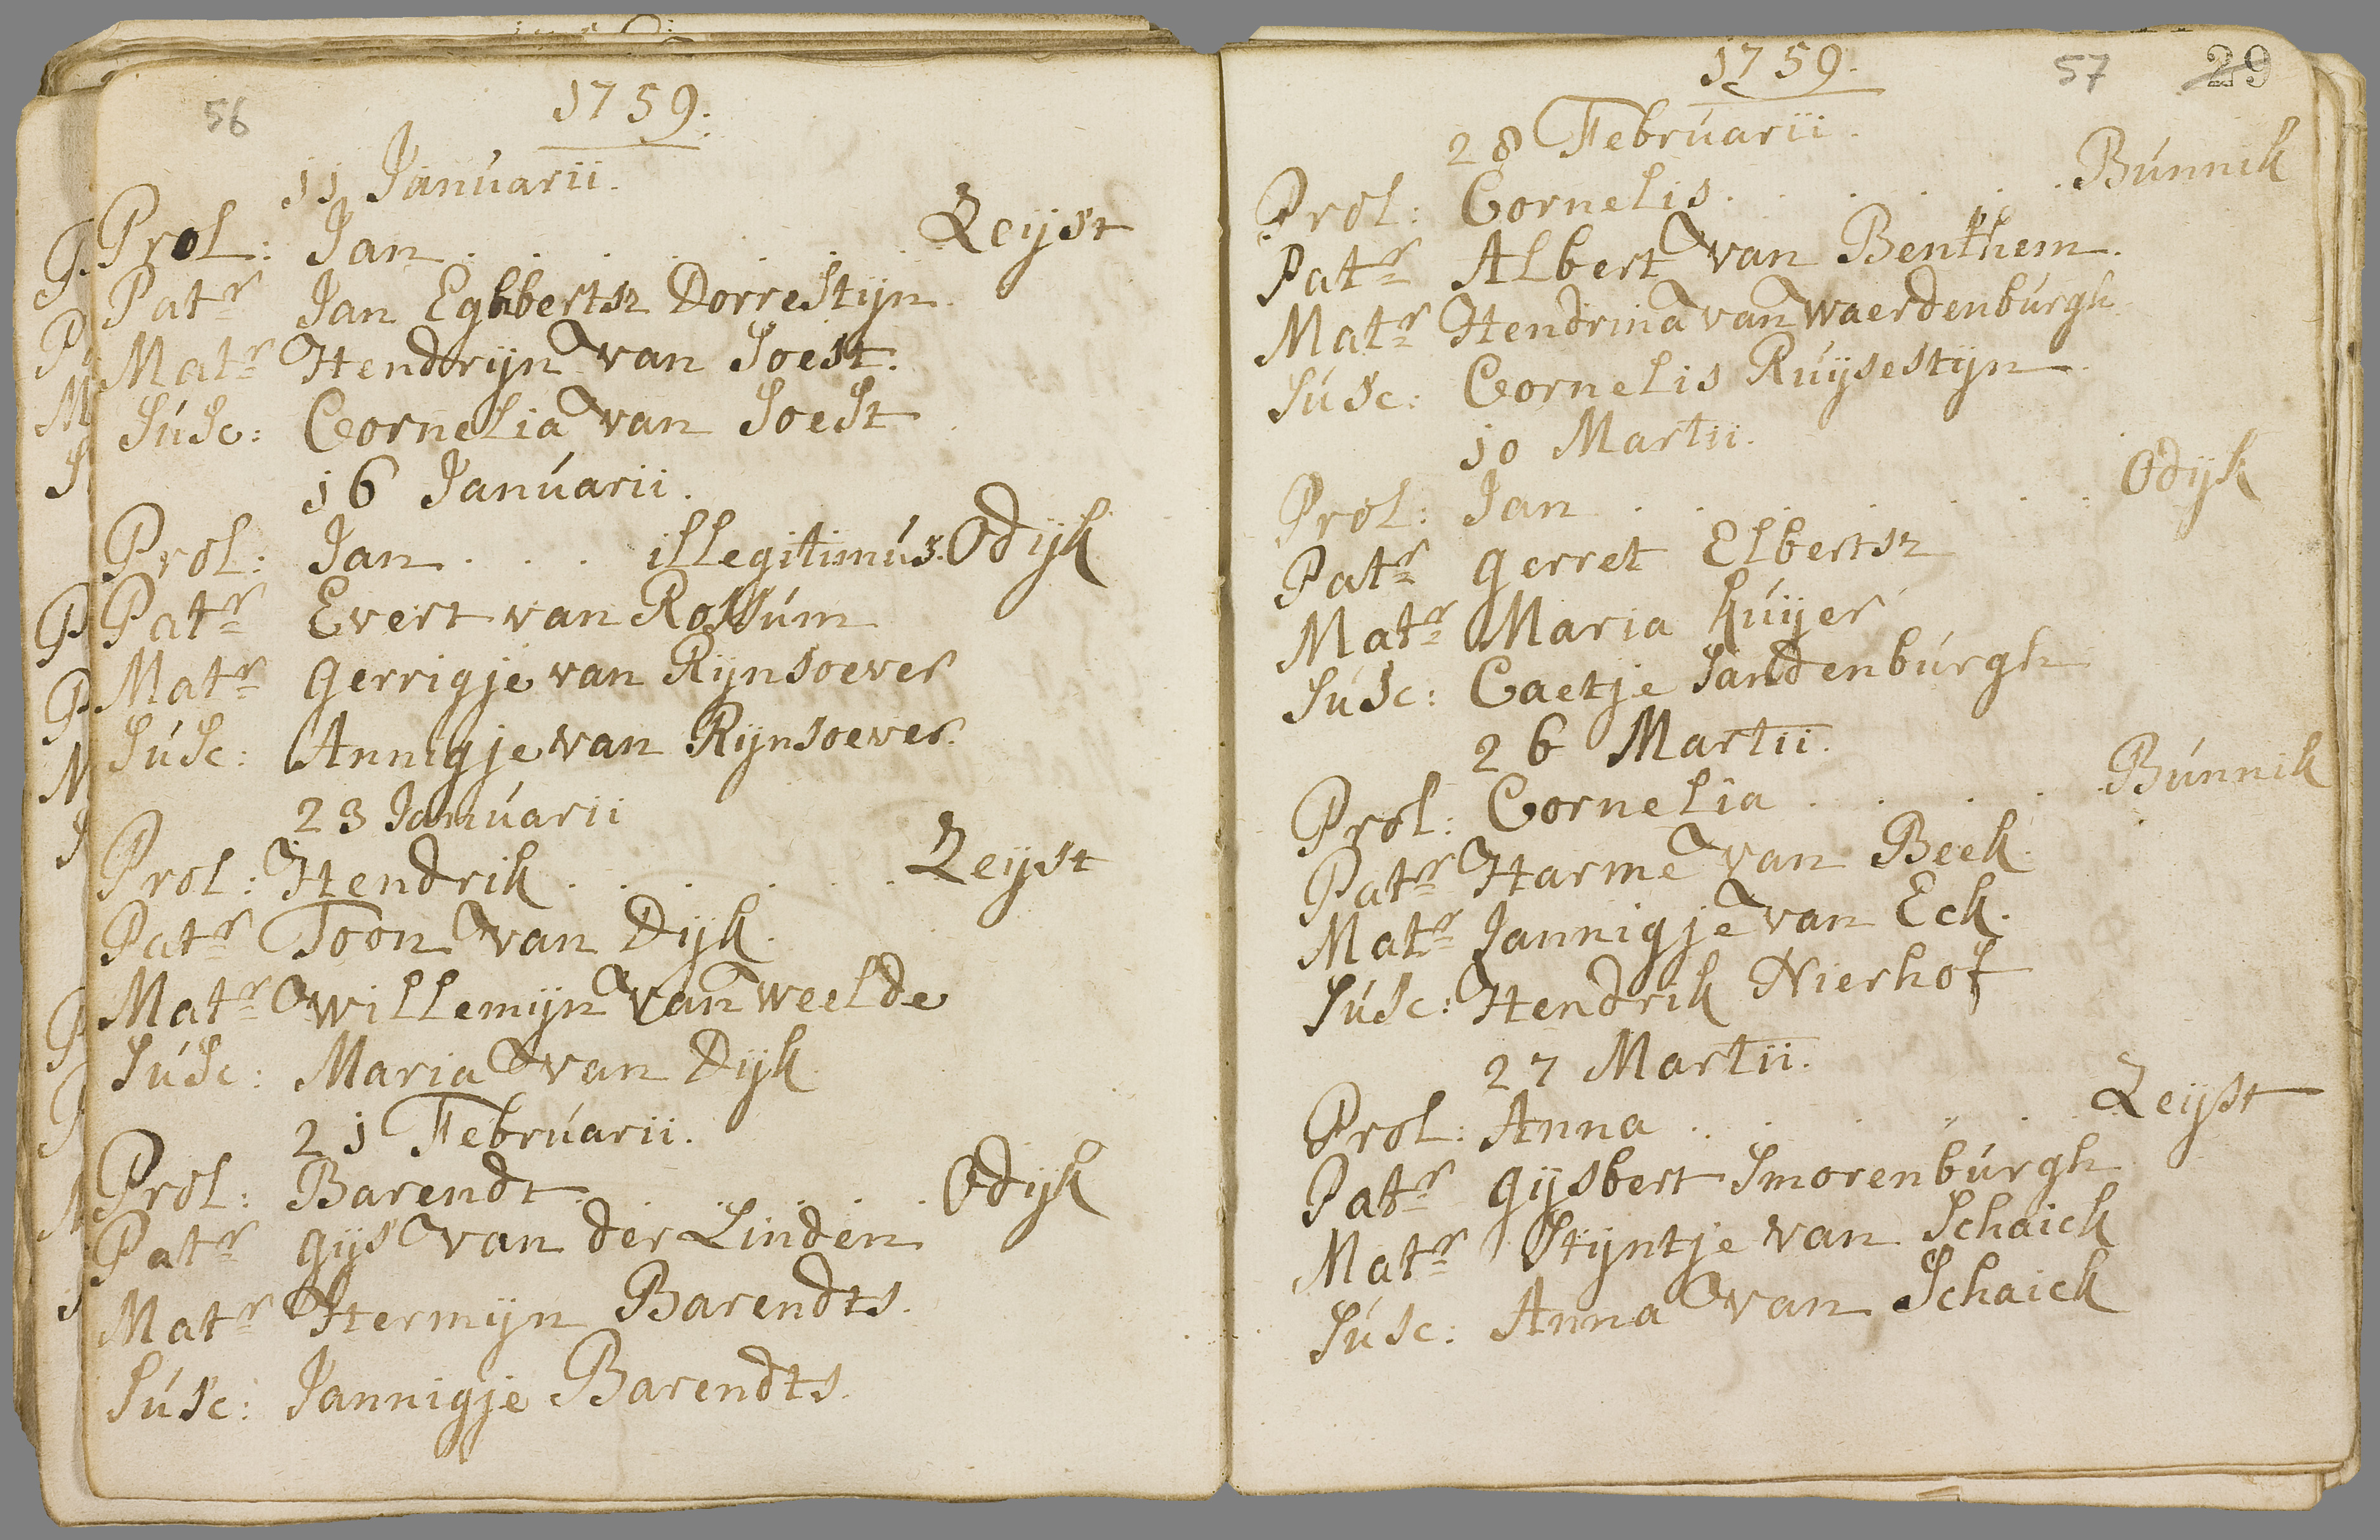 56
1759.
11 Januarii.
Prol: Jan . . . . . . . Zeijst
Patr Jan Eghbertsz Dorrestijn.
Matr Hendrijn van Soest.
Susc: Cornelia van Soest
16 Januarii.
Prol: Jan . . . illegitimus. Odijk
Patr Evert van Rossum
Matr Gerrigje van Rijnsoever
Susc: Annigje van Rijnsoever.
23 Januarii
Prol: Hendrik . . . . . . Zeijst
Patr Toon van Dijk.
Matr Willemijn van Weelde
Susc: Maria van Dijk
21 Februarii.
Prol: Barendt . . . . . . Odijk
Patr Gijs van der Linden
Matr Hermijn Barendts.
Susc: Jannigje Barendts.
1759.
57 29
28 Februarii.
Prol: Cornelis . . . . . . Bunnik
Patr Albert van Benthem.
Matr Hendrina van Waerdenburgh
Susc: Cornelis Ruijsestijn.
10 Martii.
Prol: Jan . . . . . . Odijk
Patr Gerret Elbertsz
Matr Maria Kuijer
Susc: Caetje Sandenburgh
26 Martii.
Prol: Cornelia . . . . Bunnik
Patr Harme van Beek.
Matr Jannigje van Eck.
Susc: Hendrik Nierhof
27 Martii.
Prol: Anna . . . . . . Zeijst
Patr Gijsbert Smorenburgh
Matr Stijntje van Schaick
Susc: Anna van Schaick